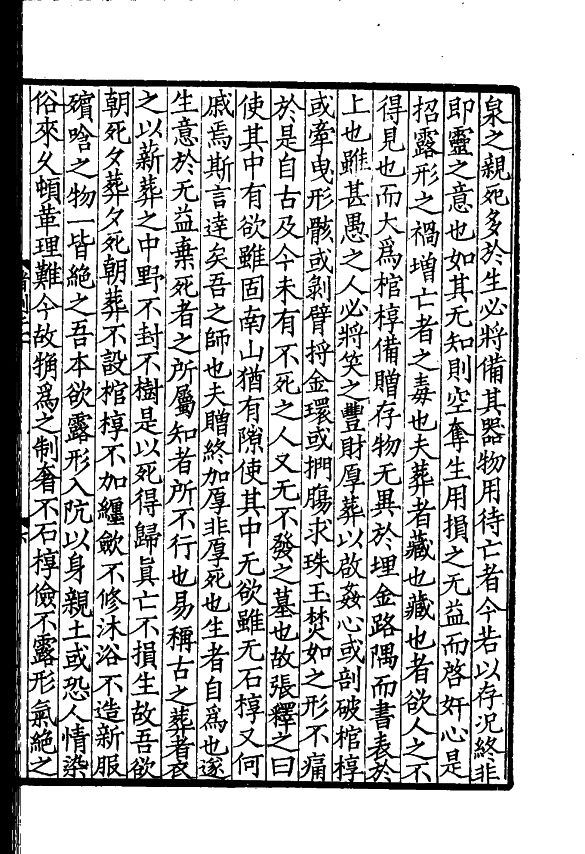 泉之親死多於生必將備其器物用待亡者今若以存況終非
即靈之意也如其无知則空奪生用損之无益而啓奸心是
招露形之禍增亡者之毒也夫葬者藏也藏也者欲人之不
得見也而大爲棺椁備贈存物无異於埋金路隅而書表於
上也雖甚愚之人必將笑之豐財厚葬以啟姦心或剖破棺椁
或牽曳形骸或剝臂捋金環或捫膓求珠玉焚如之形不痛
於是自古及今未有不死之人又无不發之墓也故張釋之曰
使其中有欲雖固南山猶有隙使其中无欲雖无石椁又何
戚焉斯言達矣吾之師也夫贈終加厚非厚死也生者自爲也遂
生意於无益棄死者之所屬知者所不行也易稱古之葬者衣
之以薪葬之中野不封不樹是以死得歸眞亡不損生故吾欲
朝死夕葬夕死朝葬不設棺椁不加纏斂不修沐浴不造新服
殯唅之物一皆絶之吾本欲露形入阬以身親土或恐人情染
俗來乆頓革理難今故觕爲之制奢不石椁儉不露形氣絶之